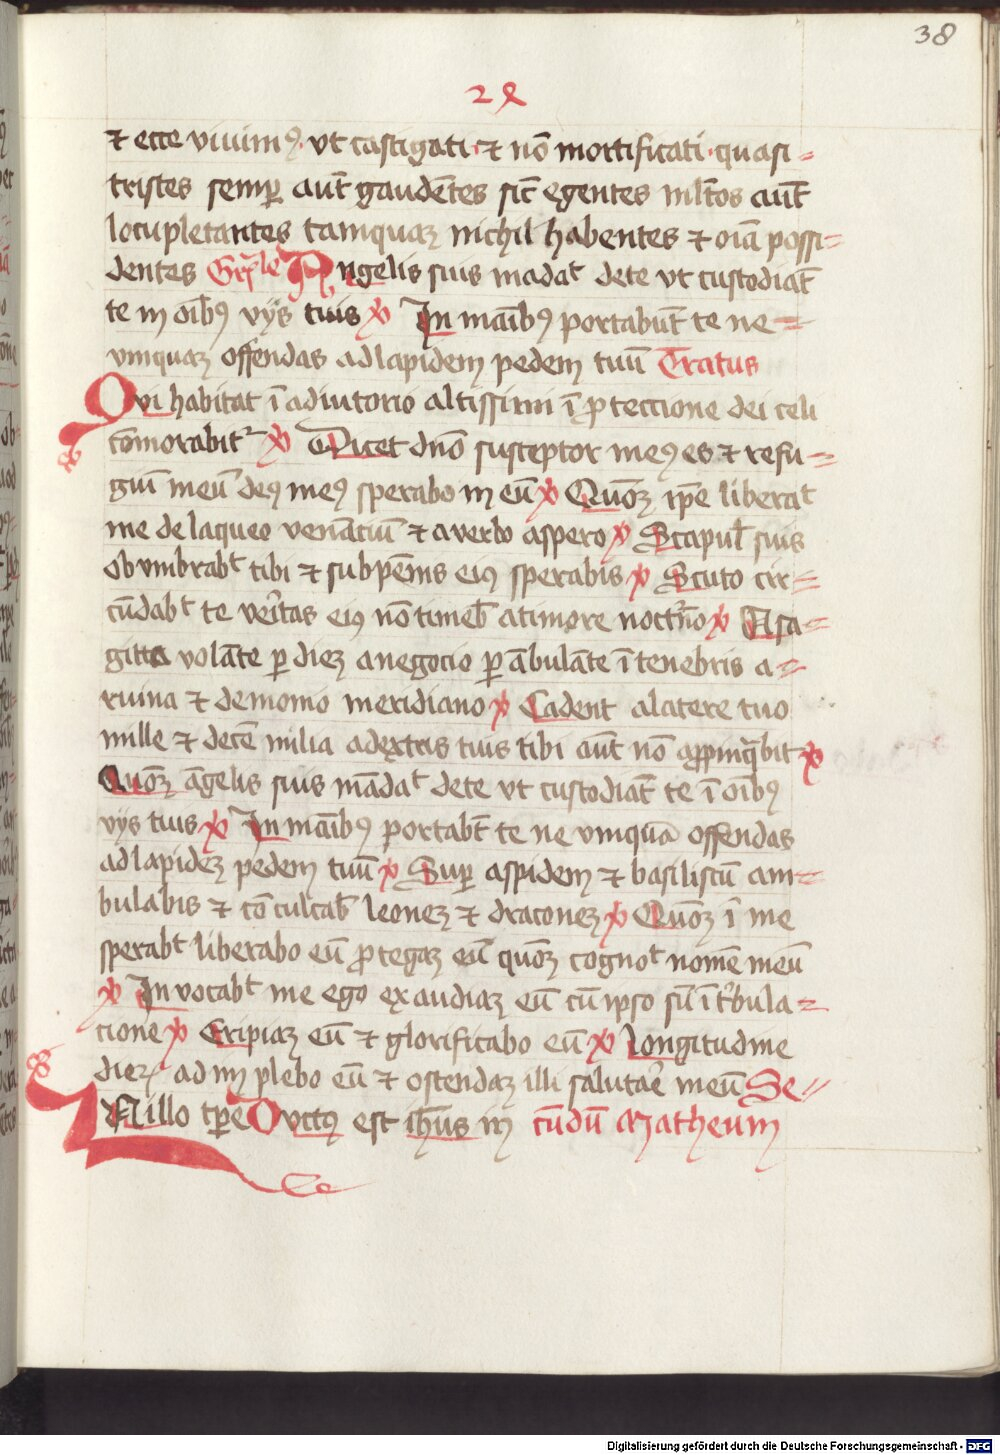 38
28
⁊ ecce viuimꝰ vt castigati ⁊ nō mortificati quasi
tristes semꝑ aut̄ gaudētes sic̄ egentes ml̄tos aut̄
locupletantes tamquaꝫ nichil habentes ⁊ oīa possi-
dentes Angelis suis mādat dete vt custodiāt
te in oībꝰ vijs tuis In maībꝰ portabūt te ne
vmquaꝫ offendas ad lapidem pedem tuū Tratus
Qvi habitat ī adiutorio altissimi ī ꝓteccione dei celi
cōmorabit᷑ Dicet dn̄o susceptor meꝰ es ⁊ refu-
giū meū deꝰ meꝰ sperabo in eū Quōꝫ ip̄e liberat
me de laqueo venātiū ⁊ averbo aspero Scapul̄ suis
obvmbrabt tibi ⁊ sub pēnis eiꝰ sperabis Scuto cir-
cūdabt te veritas eiꝰ nō timeb̄ atimore noct̄no Asa-
gitta volāte ꝑ dieꝫ anegocio ꝑābulāte ī tenebris a-
ruina ⁊ demonio meridiano Cadent alatere tuo
mille ⁊ decē milia adextris tuis tibi aut̄ nō apropinq̄bit
Quōꝫ āgelis suis mādat dete vt custodiāt te ī oībꝰ
vijs tuis In maībꝰ portabt̄ te ne vmquā offendas
ad lapideꝫ pedem tuū Suꝑ aspidem ⁊ basiliscū am-
bulabis ⁊ cōculcab̄ leoneꝫ ⁊ draconeꝫ Quōꝫ ī me
sperabt liberabo eū ꝓtegaꝫ eū quōꝫ cognot nomē meū
Invocabt me ego exaudiaꝫ eū cū ipso sū ī tbula-
cione Eripiaꝫ eū ⁊ glorificabo eū longitudine
dieꝝ adimplebo eū ⁊ ostendaꝫ illi salutāe meū Se-
INillo tꝑe Ductꝰ est ihūs in cūdū Matheum
Digitalisierung gefördert durch die Deutsche Forschungsgemeinschaft - DFG